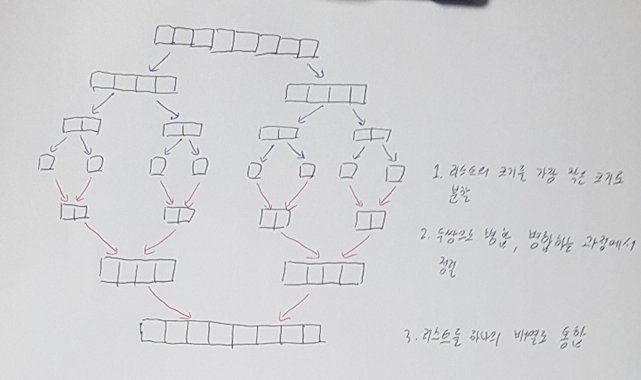 1. 리스트의 크기를 가장 작은 크기로
분할
2. 두쌍으로 병합, 병합하는 과정에서
정렬
3. 리스트를 하나의 배열로 통합